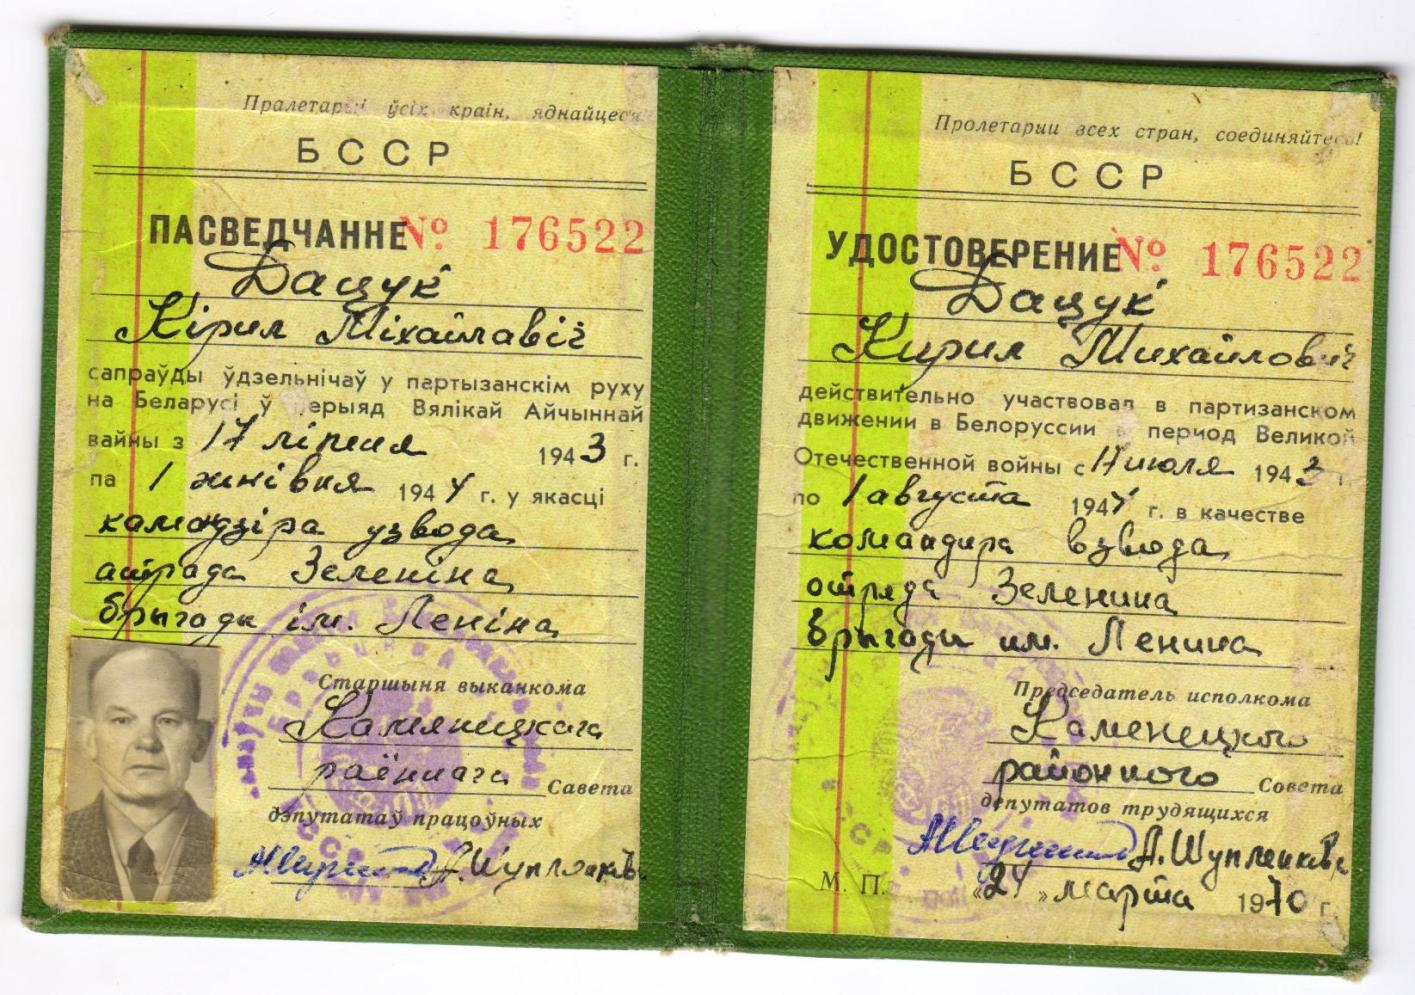 Пралетарыі ўсіх краін, яднайцеся
БССР
ПАСВЕДЧАННЕ № 176522
Дацук
Кірил Міхайлавіч
сапраўды ўдзельнічаў у партызанскім руху
на Беларусі ў перыяд Вялікай Айчыннай
вайны з 17 ліпеня 1943 г.
па 1 жніўня 1944 г. у якасці
камандзіра узвода
атрада Зеленіна
брыгады ім. Леніна
Старшыня выканкома
Камянецкага
раённага Савета
дэпутатаў працоўных
А. Шупленкова
Пролетарии всех стран, соединяйтесь!
БССР
УДОСТОВЕРЕНИЕ № 176522
Дацук
Кирил Михайлович
действительно участвовал в партизанском
движении в Белоруссии в период Великой
Отечественной войны с 17 июля 1943 г.
по 1 августа 1944 г. в качестве
командира взвода
отряда Зеленина
бригады им. Ленина
Председатель исполкома
Каменецкого
районного Совета
депутатов трудящихся
А. Шупленкова
М. П. «24» марта 1970 г.